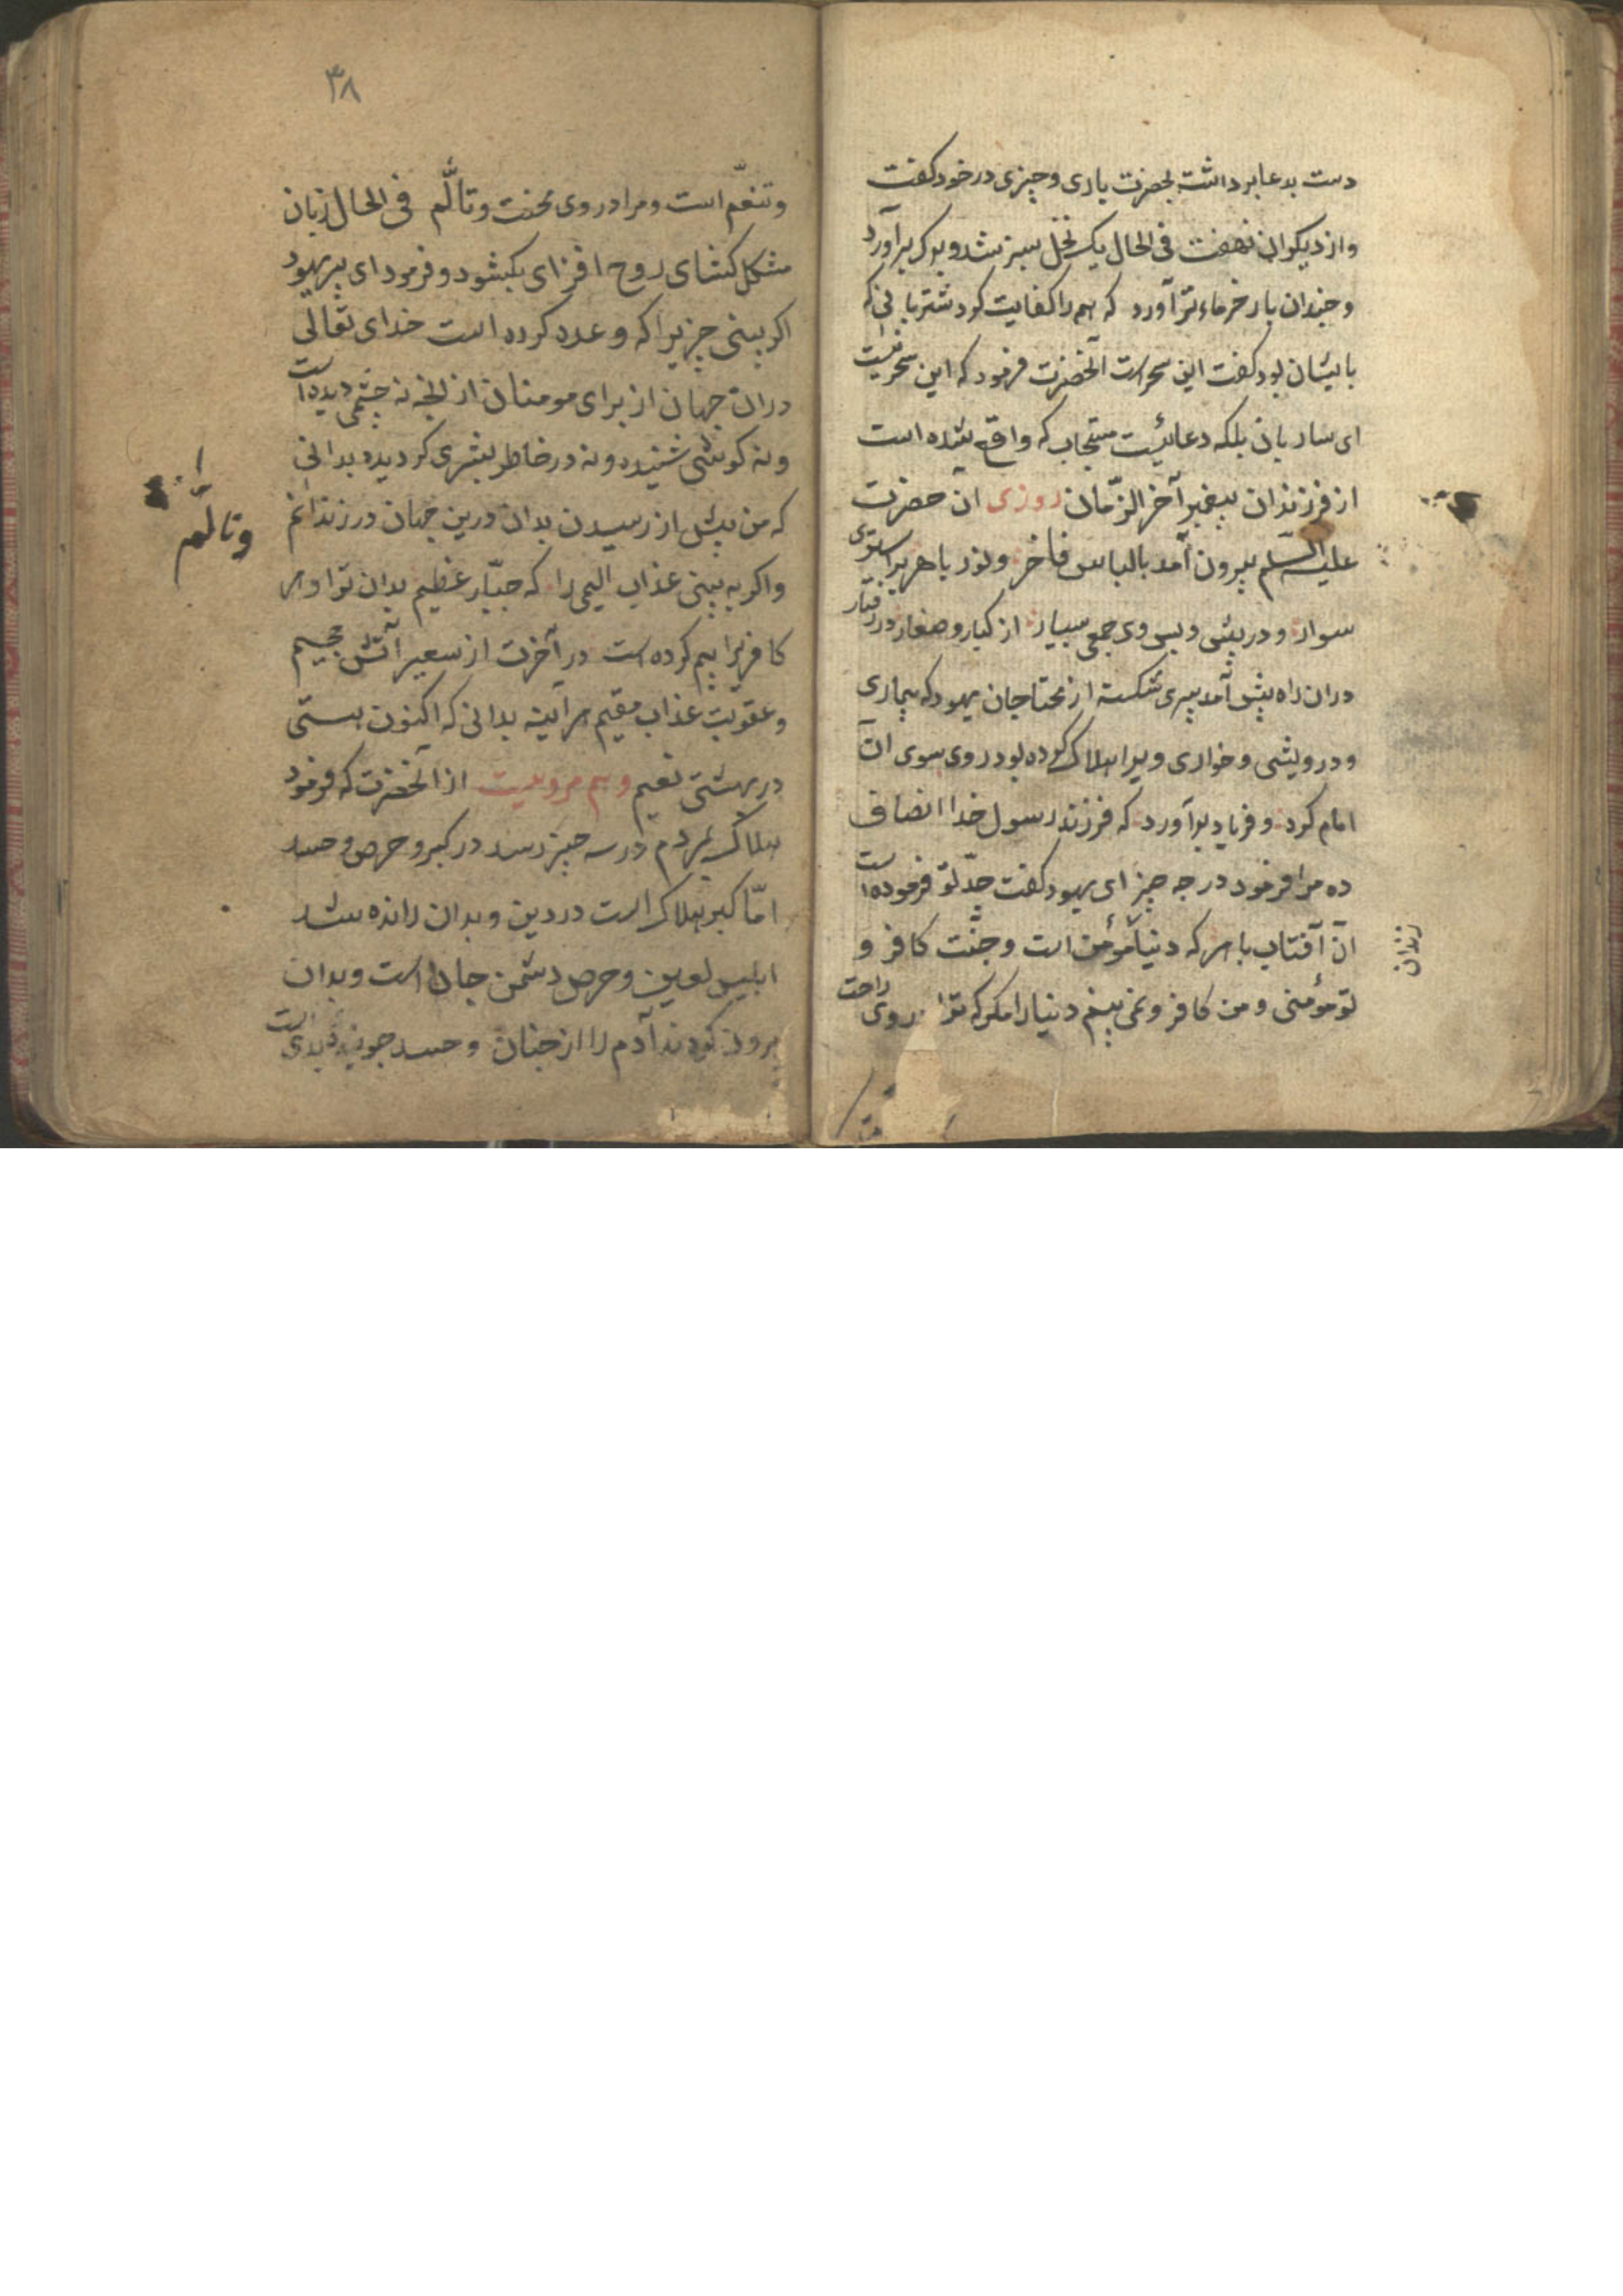 دست بدعا برداشت بحضرت باری و چیزی در خود کفت
و از دیکران نهفت فی الحال یک نخل سبز شد و برک برآورد
و چندان بار خرماء تر آورد که همه را کفایت کرد شتربانی که
بایشان بود کفت این سحر است آنحضرت فرمود که این سحر نیست
ای ساربان بلکه دعائیست مستجاب که واقع شده است
از فرزندان پیغمبر آخر الزّمان روزی آن حضرت
علیه السّلم بیرون آمد با لباس فاخر و نور باهر بر استری
سوار و در پیش و پس وی جمعی بسیار از کبار و صغار در رفتار
در ان راه پیش آمد پیری شکسته از محتاجان یهود که بیماری
و درویشی و خواری ویرا هلاک کرده بود روی سوی ان
امام کرد و فریاد برآورد که فرزند رسول خدا انصاف
ده مرا فرمود در چه چیز ای یهود کفت جدّ تو فرموده است
آن آفتاب باهر که دنیا مؤمن است و جنّت کافر و
زندان
تو مؤمنی و من کافر و نمی بینم دنیا را مکر که ترا روی راحت
۳۸
و تنعّم است و مرا در وی محنت و تألّم فی الحال زبان
مشکل کشای روح افزای بکشود و فرمود ای پیر یهود
اکر بینی چیزیرا که وعده کرده است خدای تعالی
در ان جهان از برای مومنان از آنچه نه چشمی دیده است
و نه کوشی شنیده و نه در خاطر بشری کردیده بدانی
که من پیش از رسیدن بدان درین جهان در زندانم
وتألّم
و اکر به بینی عذاب الیمی را که جبّار عظیم بدان ترا و هر
کافریرا بیم کرده است در آخرت از سعیر آتش جحیم
و عقوبت عذاب مقیم هر آینه بدانی که اکنون هستی
در بهشتی نعیم و هم مرویست از آنحضرت که فرمود
هلاک بمردم در سه چیز رسد در کبر و حرص و حسد
امّا کبر هلاک است در دین و بدان رانده شد
ابلیس لعین و حرص دشمن جان است و بدان
برون کردند آدم را از جنان و حسد جوینده بدی است